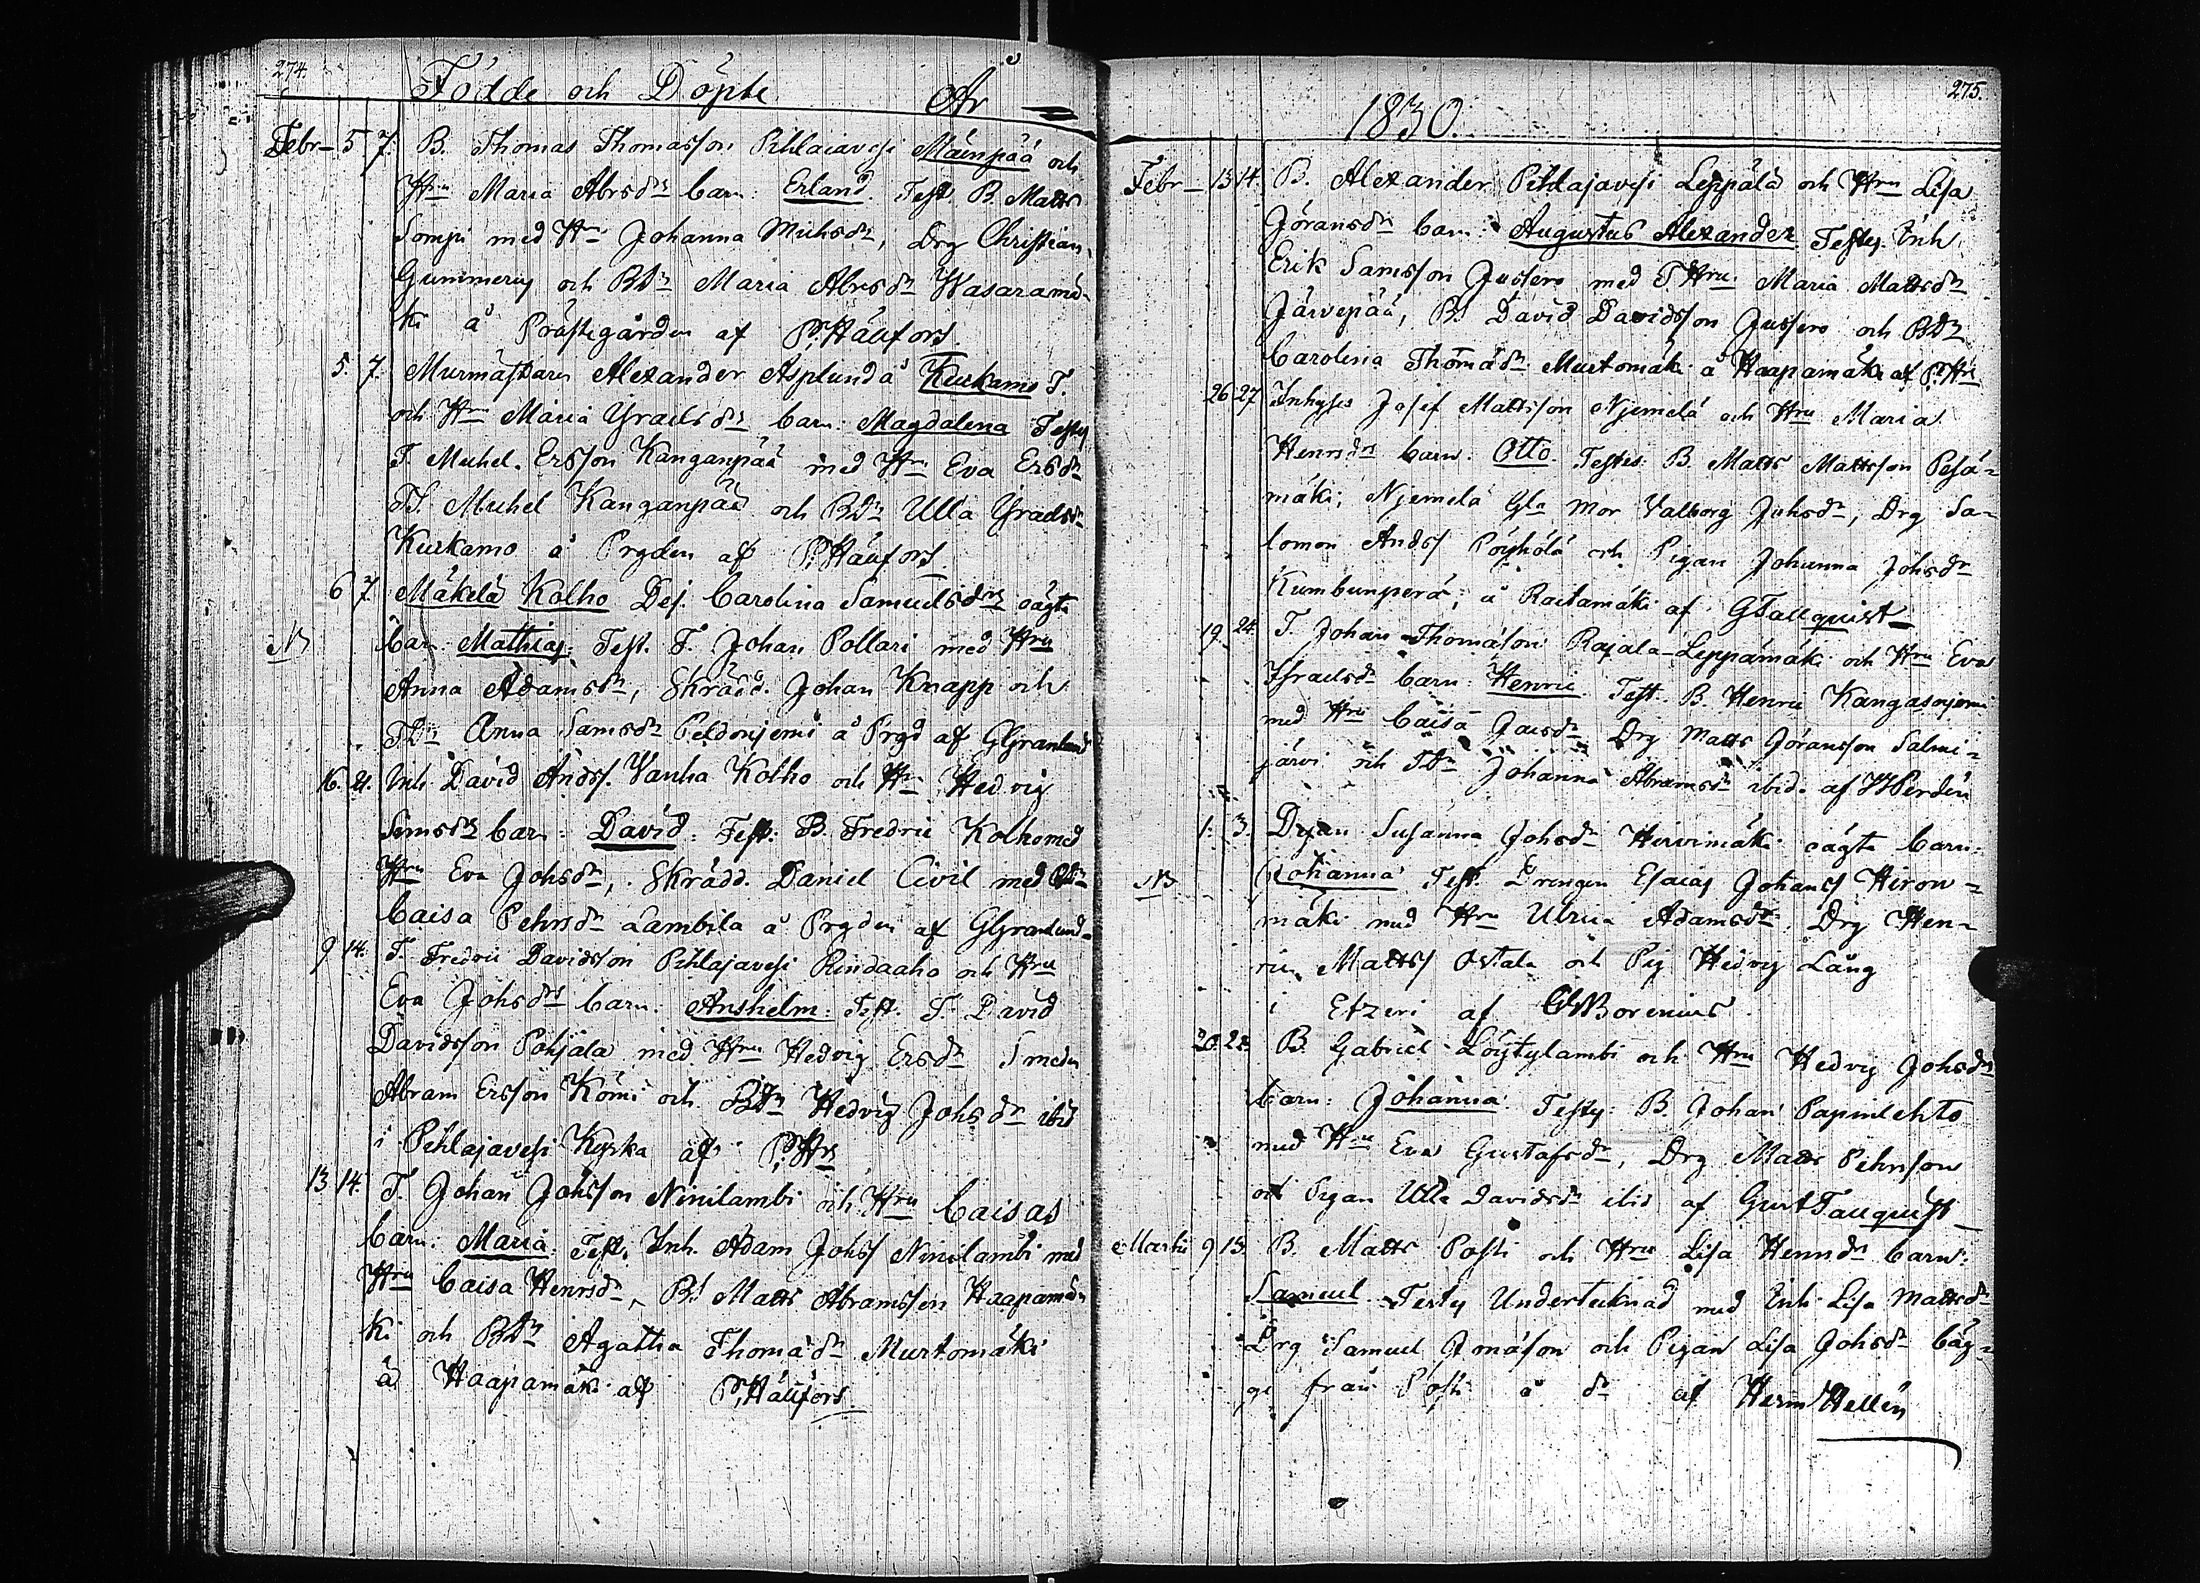 274.
Födde och Döpte År
Febr- 5. 7. B. Thomas Thomasson Pihlaiavesi Mäenpää och
Hru Maria Abrsdrs barn: Erland. Test. B. Matts
Sompi med Hru Johanna Michsdr, Drg Christian
Gummerus och BDr Maria Abrsdr Wasaramä-
ki å Prästegården af P. Häufors.
5. 7. Murmästaren Alexander Asplund å Kurkamo T.
och Hru Maria Yraelsdrs barn Magdalena Testes
T. Michel Ersson Kanganpää med Hru Eva Ersdr
TS. Michel Kanganpää och BDr Ulla Yraelsdr
Kurkamo å Prgden af P. Häufors
6 7. Mäkelä Kolho Dej. Carolina Samuelsdrs oägta
NB barn Mathias: Test. T. Johan Pollari med Hru
Anna Adamsdr, Skrädd. Johan Knapp och
TDr Anna Samsdr Peldonjemi å Prgd af GGranlund
16. 21. Inh David Andss. Vanha Kolho och Hru Hedvig
Simsdrs barn: David: Test: B. Fredric Kolho med
Hru Eva Johsdr, Skrädd. Daniel Civil med
Caisa Pehrsdr Lambila å Prgden af GGranlund
9 14. T. Fredric Davidsson Pihlajavesi Rindaaho och Hru
Eva Johsdrs barn: Anshelm: Test. T. David
Davidsson Pohjala med Hru Hedvig Ersdr Smeden
Abram Ersson Kömi och BDr Hedvig Johsdr ibid
i Pihlajavesi Kyrka af P. Hrs
13 14. T. Johan Johsson Ninilambi och Hru Caisas
barn: Maria: Test. Inh. Adam Johss Ninilambi med
Hru Caisa Henrsdr, BS Matts Abramsson Haapamä-
ki och BDr Agatha Thomädr Murtomäki
å Haapamäki af P. Häufors.
275.
1830.
Febr- 13 14. B. Alexander Pihlajavesi Leppälä och Hru Lisa
Göransdrs barn: Augustus Alexander Testes. Inh
Erik Samsson Jussero med T. Hru Maria Mattsdr
Järvepää, BS David Davidsson Jussero och BDr
Carolina Thomädr Murtomäki å Haapamäki af P. Hrs
26 27 Inhyses Josef Mattsson Njemelä och Hru Maria
Henrsdrs barn: Otto. Testes: B. Matts Mattsson Pesä-
mäki; Njemelä Gla mor Valborg Johsdr, Drg Sa-
lomon Andss Pöyhölä och Pigan Johanna Johsdr
Kumbunperä; å Raitamäki af GTallquist
19. 24. T. Johan Thomäson Rajala-Leppämäki och Hru Eva
Israelsdrs barn: Henric. Test. B. Henric Kangasnjemi
med Hru Caisa Jacsdr Drg Matts Göransson Salmi-
järvi och TDr Johanna Abramsdr ibid. af WPerdén
1. 3. Dejan Susanna Johsdr Hirvimäki oägta barn:
NB Johanna Test. Drengen Esaias Johanss Hirvi-
mäki med Hru Ulrica Adamsdr Drg Hen-
ric Mattss Ostala och Pig Hedvig Lång
i Etzeri af Borenius
20. 22. B. Gabriel Löytylambi och Hru Hedvig Johsdrs
barn: Johanna Testes: B. Johan Papinlehto
med Hru Eva Gustafsdr, Drg Matts Pehrsson
och Pigan Ulla Davidsdr ibid af Gust Tauquist
Martii 9 13. B. Matts Posti och Hru Lisa Henrsdrs barn:
Samuel. Testes Undertecknad med Inh. Lisa Mattsdr
Drg Samuel Jonäson och Pigan Lisa Johsdr båg-
ge från Posti å dr af Herm Hellén